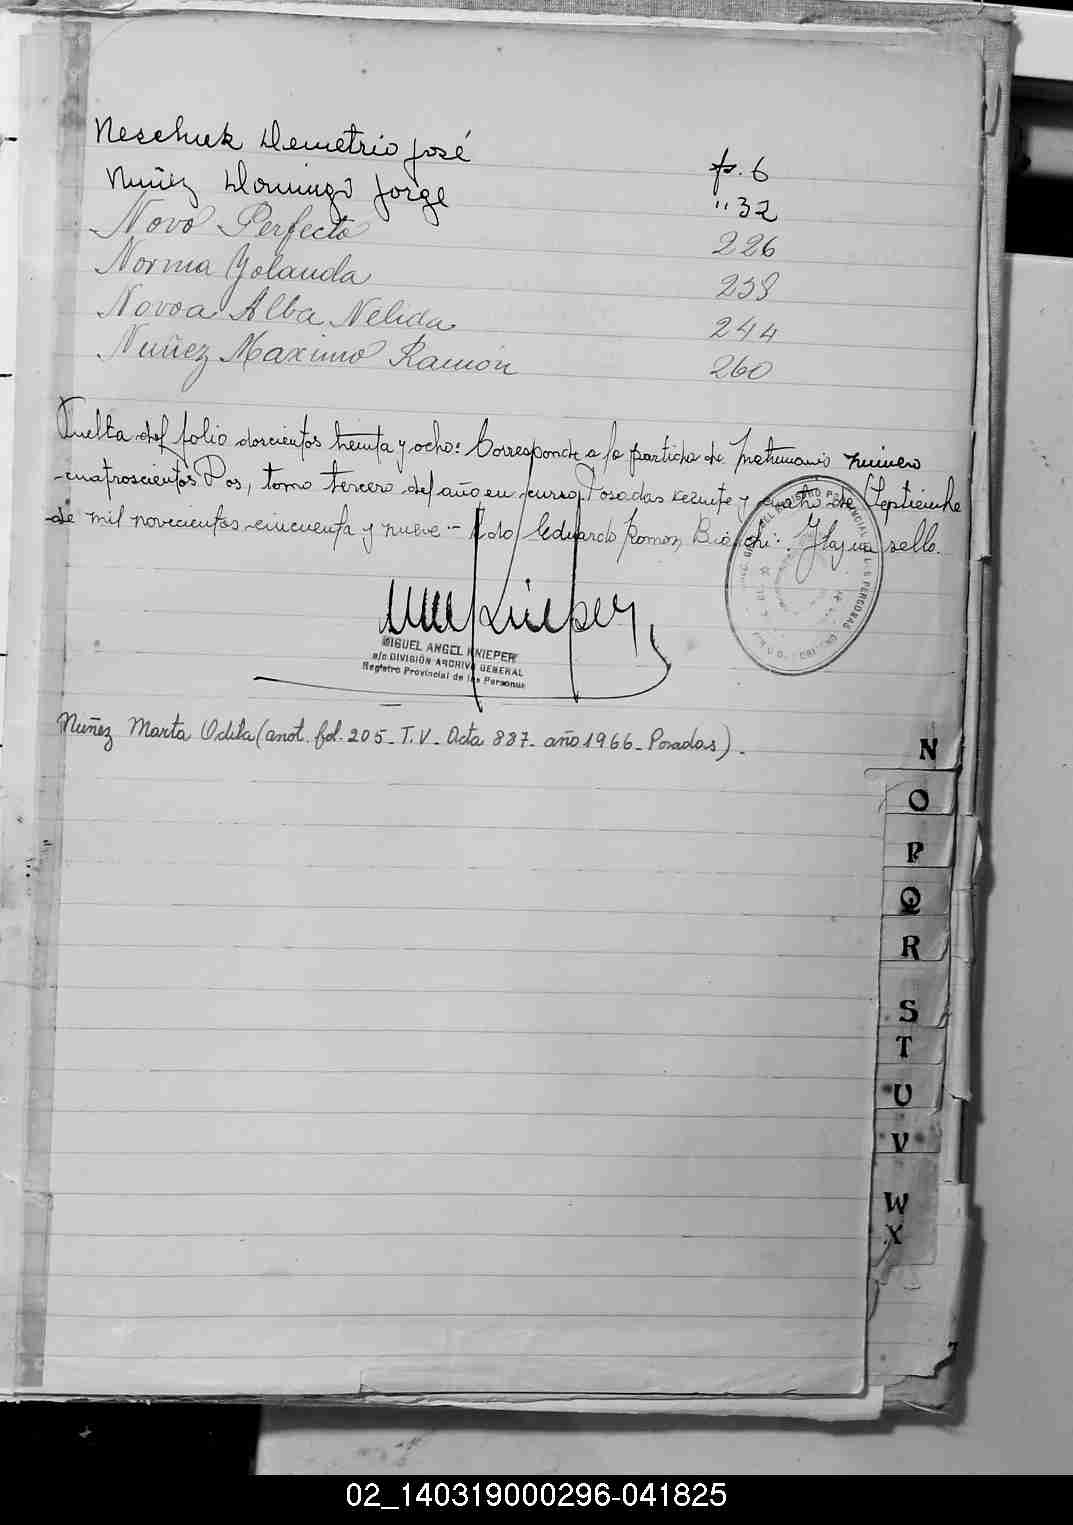 Neschuk Demetrio José p. 6
Nuñez Domingo Jorge " 32
Novo Perfecto 226
Norma Yolanda 238
Novoa Alba Nelida 244
Nuñez Maximo Ramón 260
Vuelta del folio doscientos treinta y ocho: Corresponde a la partida de matrimonio número
cuatroscientos Dos, tomo tercero del año en curso, Posadas veinte y cuatro de Septiembre
de mil novecientos cincuenta y nueve.- Fdo/ Eduardo Ramon Bianchi: Hay un sello.
MIGUEL ANGEL KNIEPER
a/c DIVISIÓN ARCHIVO GENERAL
Registro Provincial de las Personas
REGISTRO PROVINCIAL DE LAS PERSONAS
Nuñez Marta Odila (anot. fol. 205 - T. V - Acta 887 - año 1966 - Posadas).
N
O
P
Q
R
S
T
U
V
W
X
02_140319000296-041825